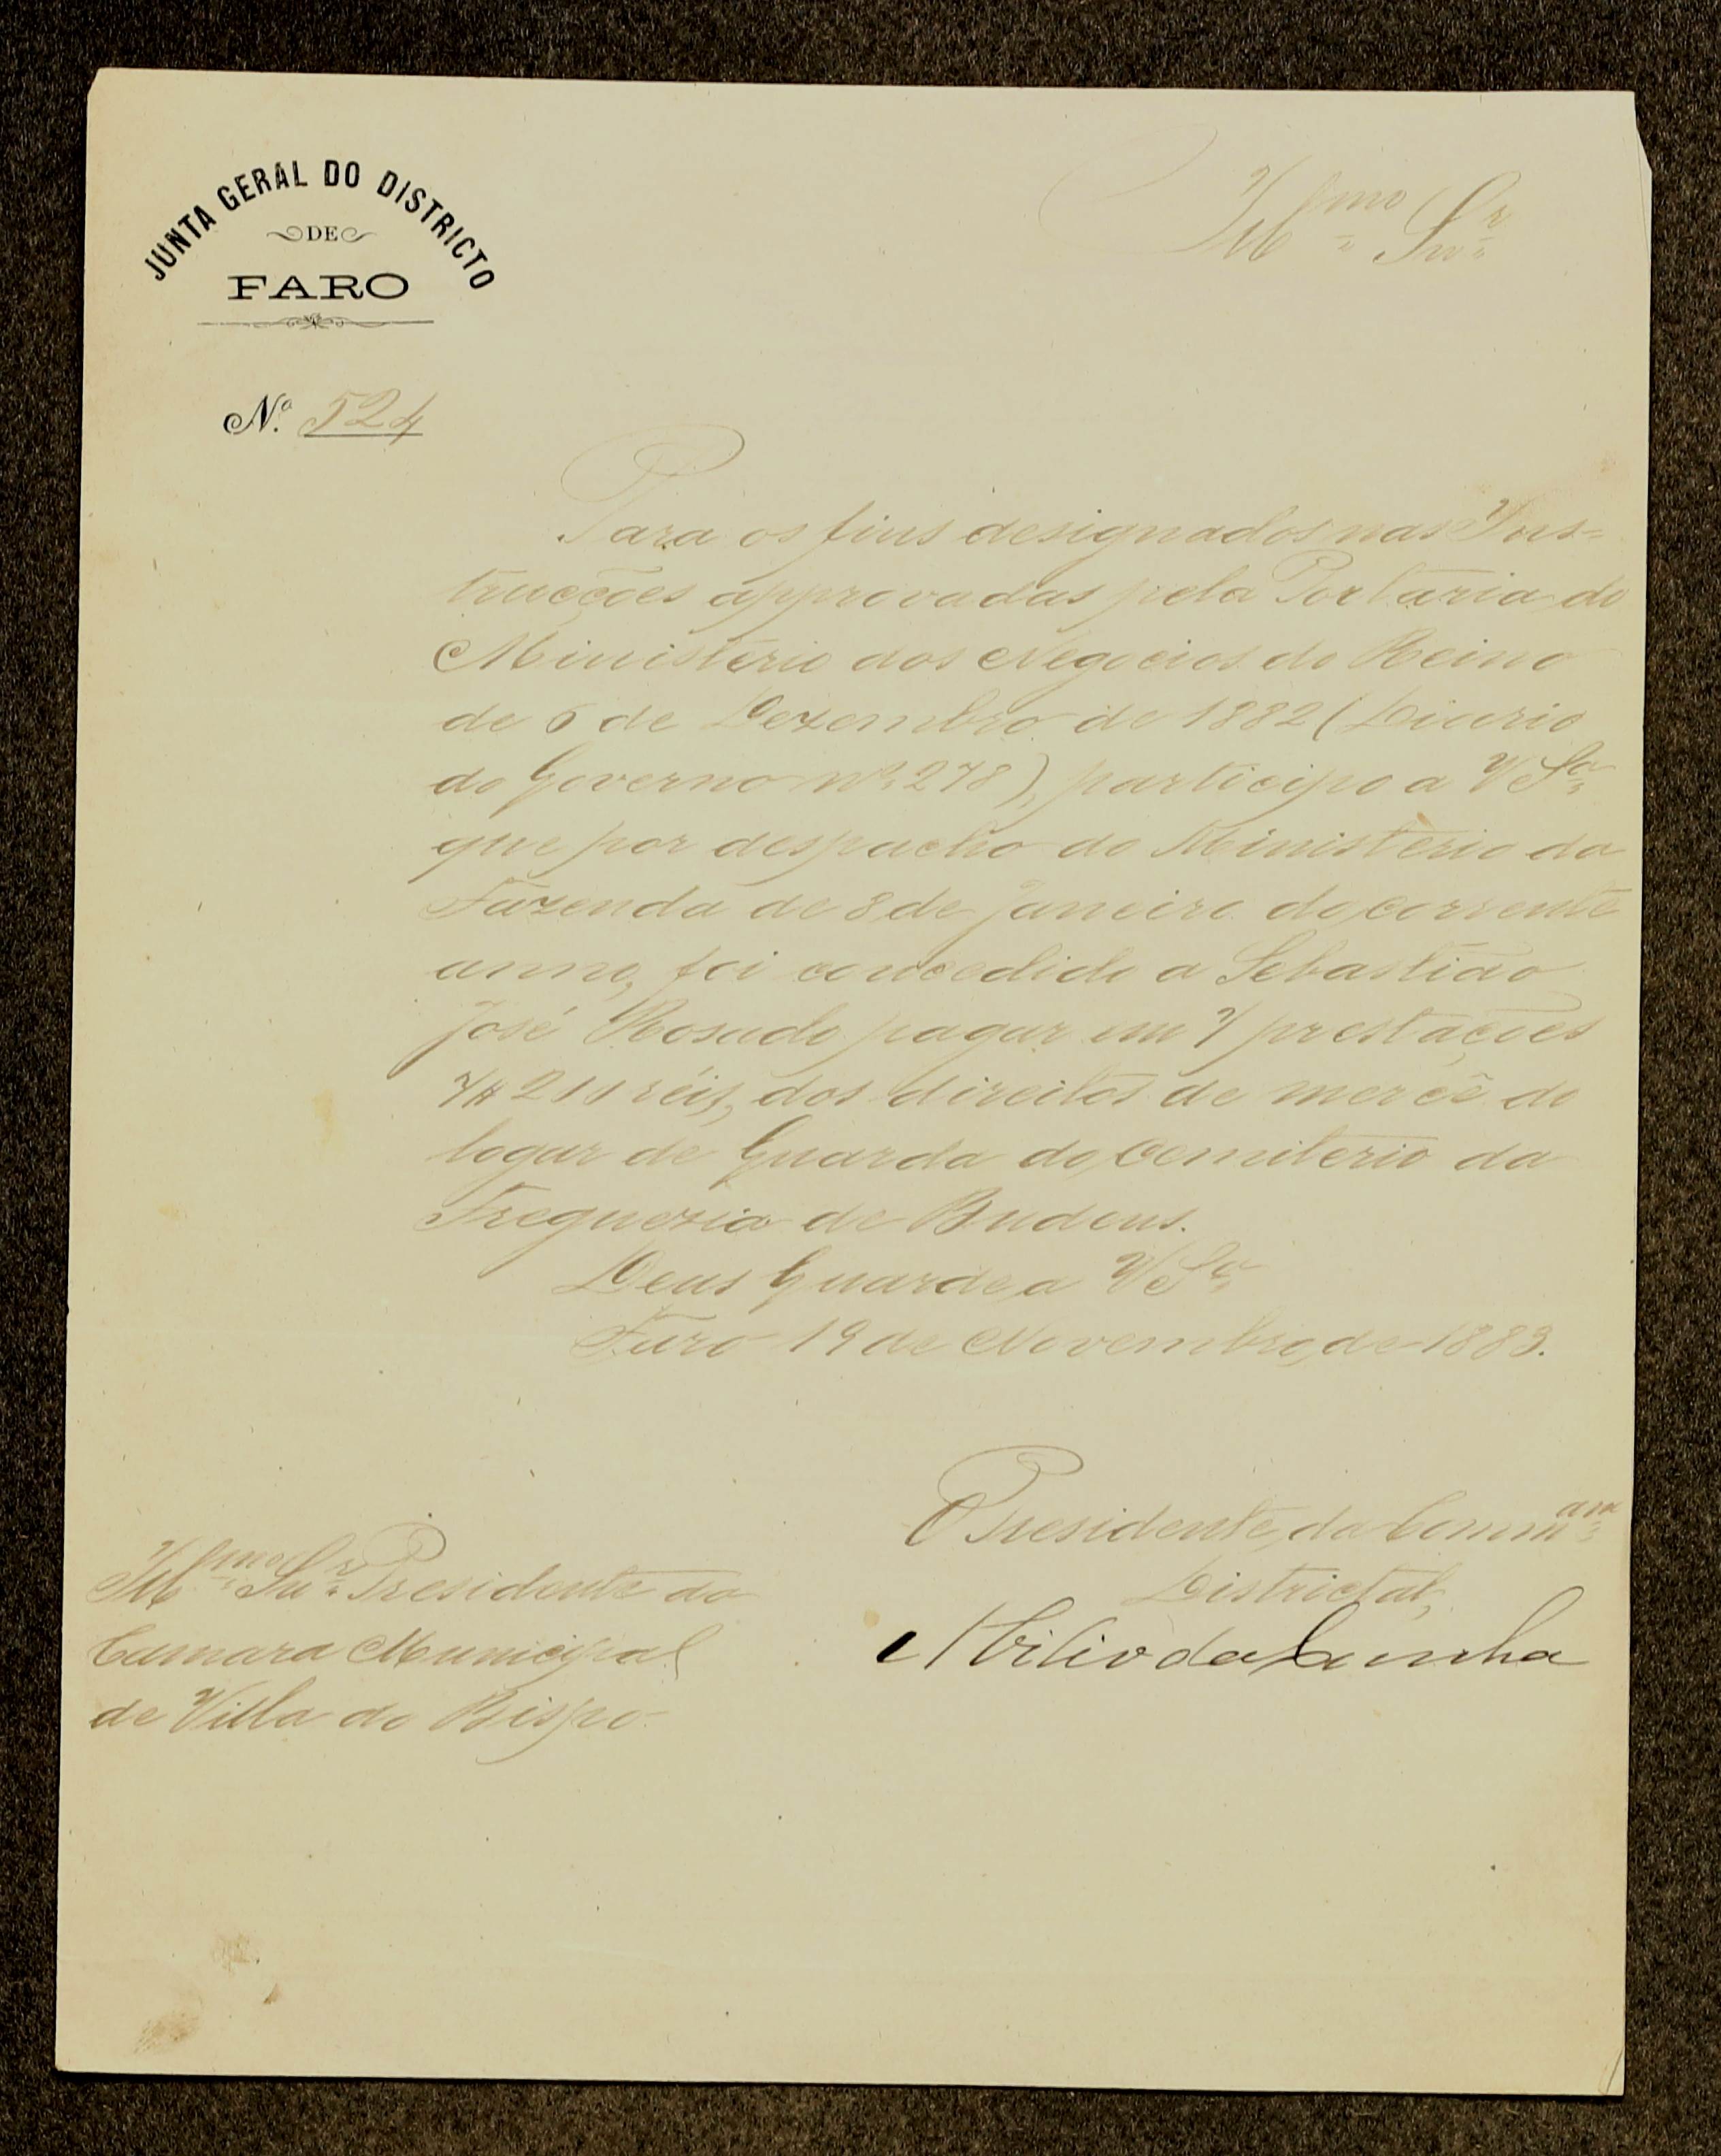 JUNTA GERAL DO DISTRICTO
DE
FARO
Nº 524
Illmo Snr
Para os fins designados nas Ins=
trucções approvadas pela Portaria do
Ministerio dos Negocios do Reino
de 6 de Dezembro de 1882 (Diario
do Governo nº 278), participo a V Sa
que por despacho do Ministerio da
Fazenda de 8 de Janeiro do corrente
anno, foi concedido a Sebastião
José Rosado pagar em prestações
réis, dos direitos de mercê do
logar de Guarda do Cemiterio da
Freguezia de Budens.
Deus Guarde a V Sa
Faro 19 de Novembro de 1883.
O Presidente da Commam
Districtal,
Abilio da Cunha
Illmo Snr Presidente da
Camara Municipal
de Villa do Bispo